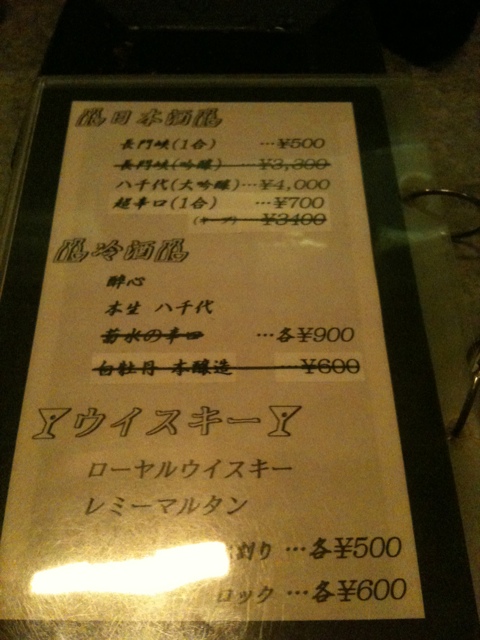 日本酒
長門峡(1合) …¥500
長門峡(吟醸) ¥3,300
八千代(大吟醸)…¥4,000
超辛口(1合) …¥700
¥3400
冷酒
酔心
本生 八千代
の辛口 …各¥900
白牡丹 本醸造 …¥600
ウイスキー
ローヤルウイスキー
レミーマルタン
割り …各¥500
ロック …各¥600